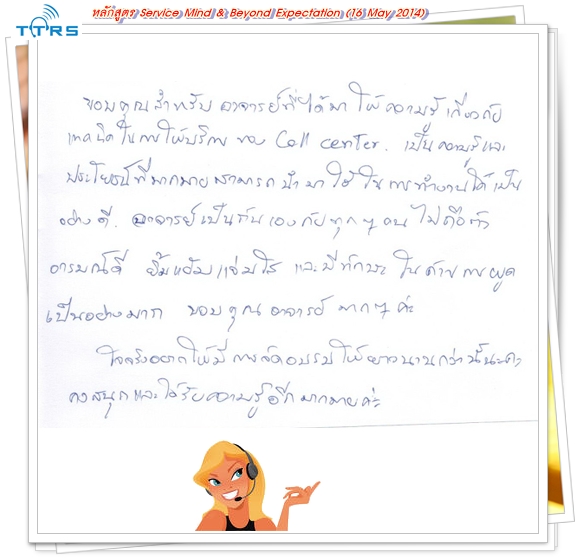 หลักสูตร Service Mind & Beyond Expectation (16 May 2014)
TTRS
ขอบคุณสำหรับ อาจารย์ที่ได้มา ให้ความรู้ เกี่ยวกับ
เทคนิคในการให้บริการ ของ Call center. เป็นความรู้และ
ประโยชน์ที่มากมายสามารถนำมาใช้ในการทำงานได้เป็น
อย่างดี. อาจารย์เป็นกันเองกับทุกๆคน ไม่ถือตัว
อารมณ์ดี ยิ้มแย้มแจ่มใส และมีทักษะ ในด้านการพูด
เป็นอย่างมาก ขอบคุณ อาจารย์ มากๆ ค่ะ
ใจจริงอยากให้มี การจัดอบรมให้ยาวนานกว่านี้นะคะ
คงสนุกและได้รับความรู้อีกมากมายค่ะ